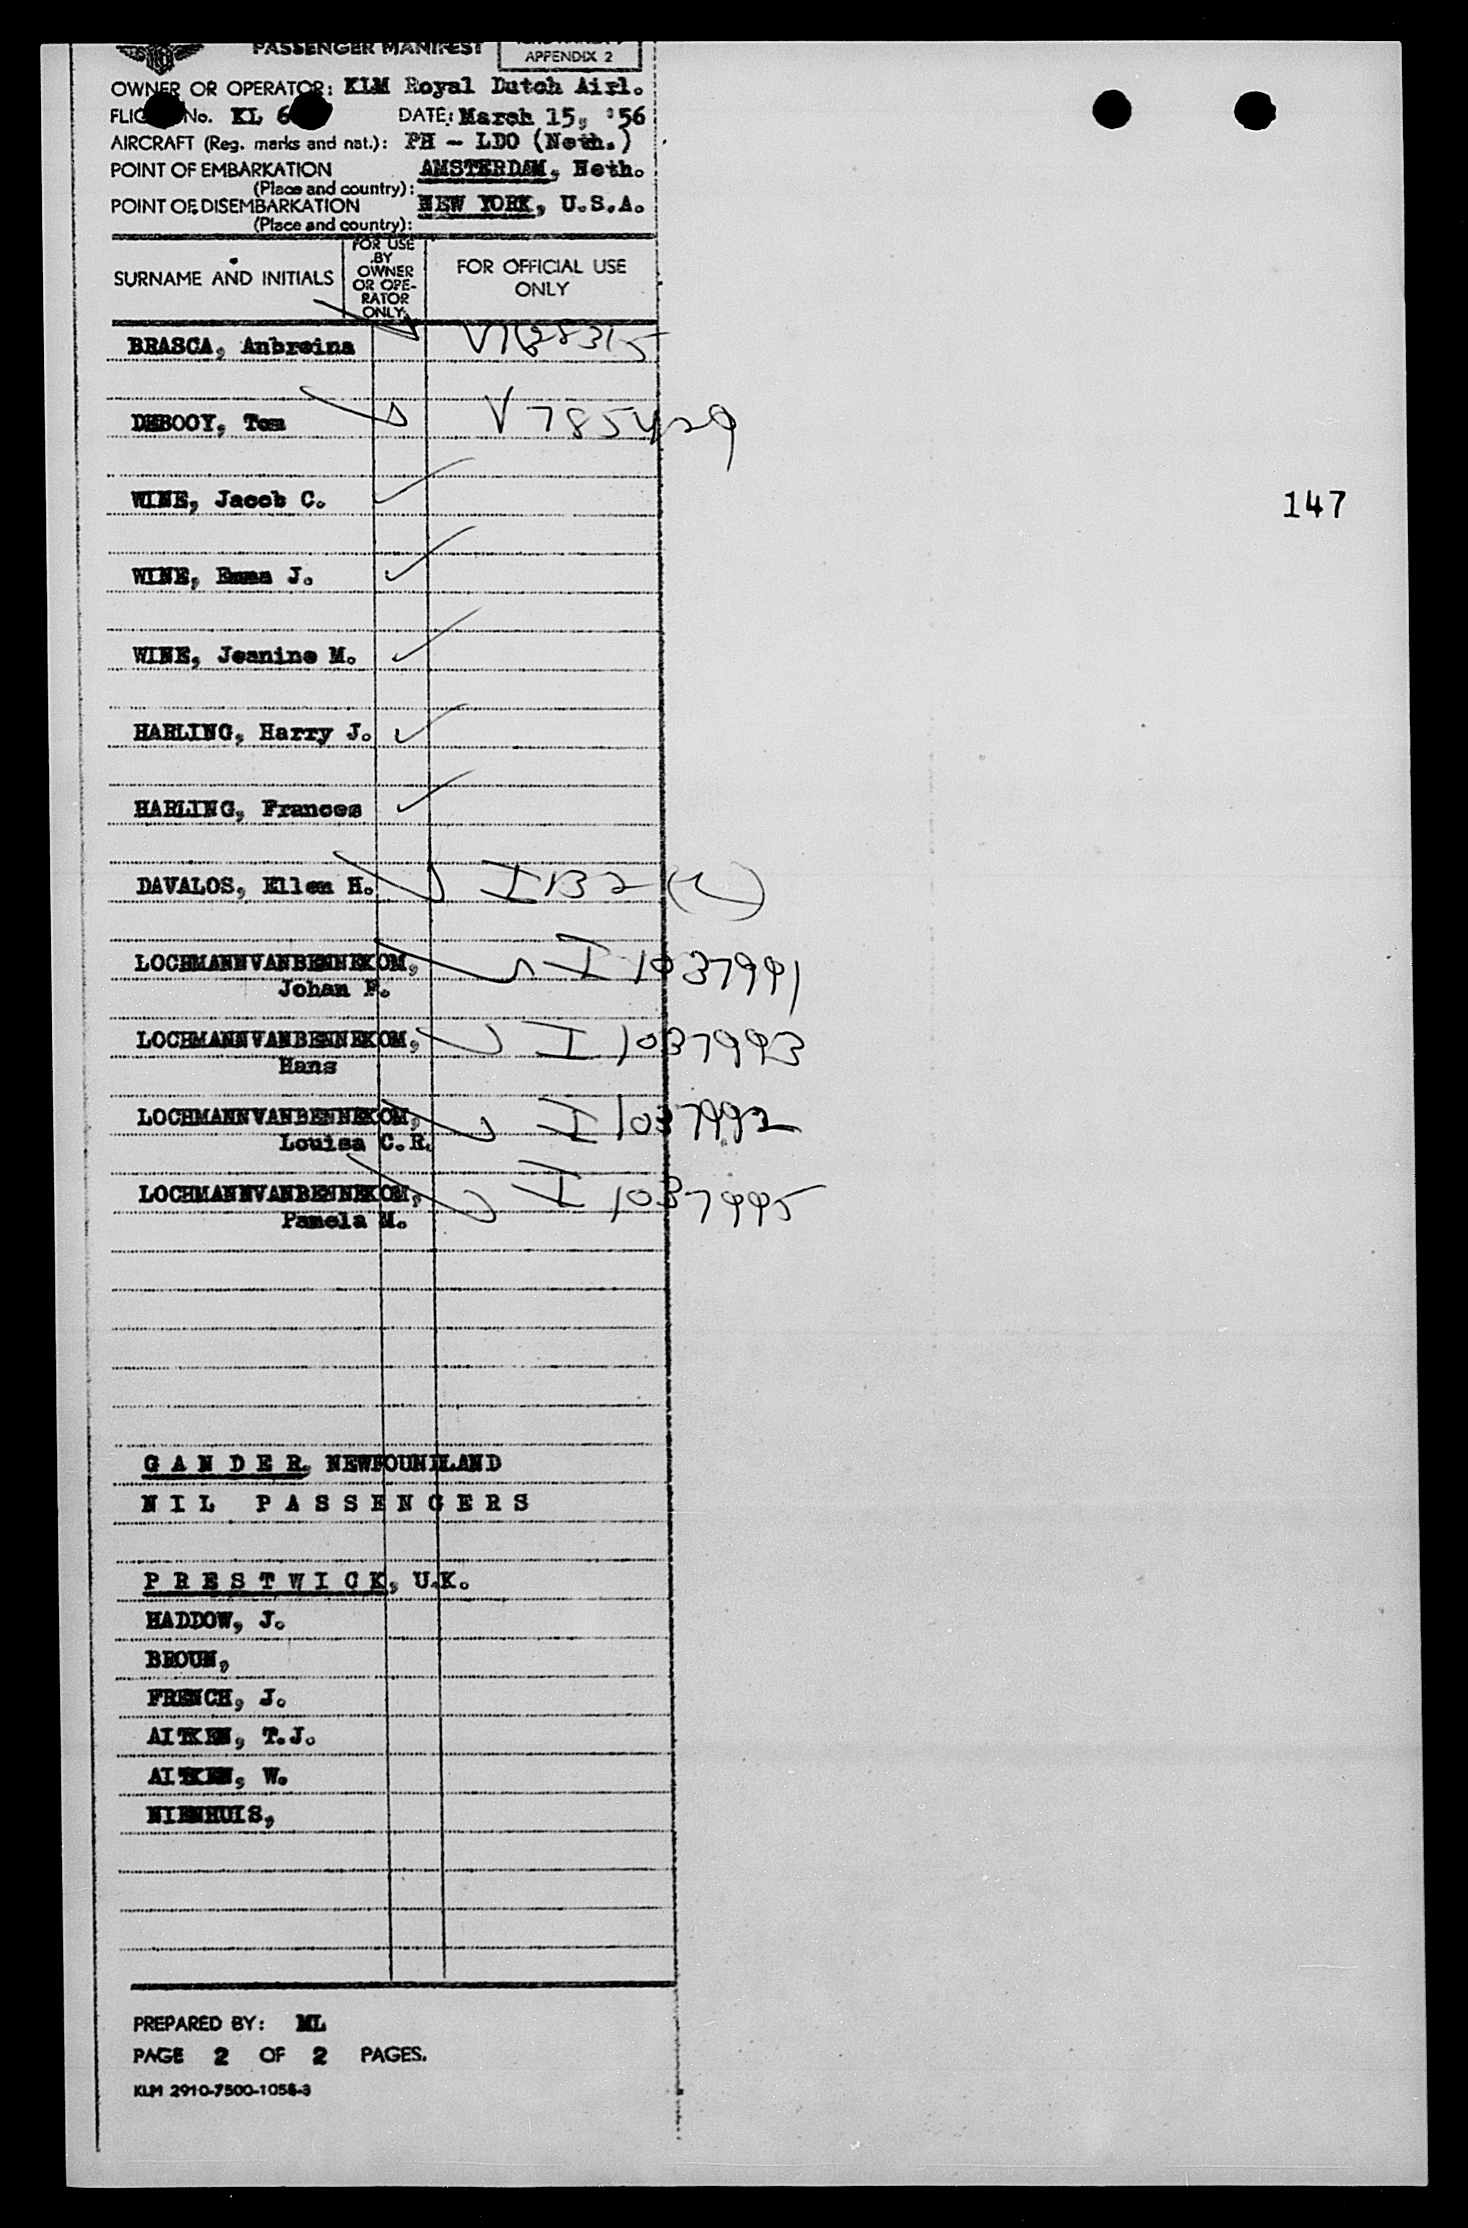 PASSENGER MANIFEST
APPENDIX 2
OWNER OR OPERATOR: KLM Royal Dutch Airl.
No. KL 6 DATE: March 15, '56
AIRCRAFT (Reg. marks and nat.): PH - LDO (Neth.)
POINT OF EMBARKATION AMSTERDAM, Neth.
(Place and country):
POINT OF DISEMBARKATION NEW YORK, U.S.A.
(Place and country):
SURNAME AND INITIALS
FOR USE
BY
OWNER
OR OPE-
RATOR
ONLY
FOR OFFICIAL USE
ONLY
BRASCA, Anbreina
DEBOOY, Tom V785429
147
WINE, Jacob C.
WINE, Emma J.
WINE, Jeanine M.
HARLING, Harry J.
HARLING, Frances
DAVALOS, Ellen H.
LOCHMANNVANBENNEKOM, I 1037991
Johan F.
LOCHMANNVANBENNEKOM, I 1037993
Hans
LOCHMANNVANBENNEKOM, I 1037992
Louisa C.R.
LOCHMANNVANBENNEKOM, I 1037995
Pamela M.
G A N D E R, NEWFOUNDLAND
N I L P A S S E N G E R S
P R E S T W I C K, U.K.
HADDOW, J.
BROUN,
FRENCH, J.
AITKEN, T.J.
AITKEN, W.
NIENHUIS,
PREPARED BY: ML
PAGE 2 OF 2 PAGES.